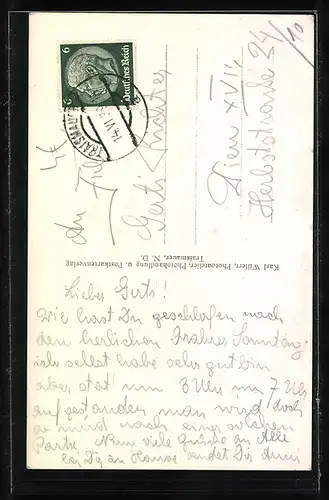 6 6
Deutsches Reich
TRAISMAUER
14.VI.39
An Frl
Gerti
Wien XVII
Herbststrasse 94/10
Karl Willert, Photoatelier, Photohandlung u. Postkartenverlag
Traismauer, N. D.
Liebes Gerti!
Wie hast Du geschlafen nach
den herlichen Sonntag,
ich selbst habe sehr gut hin
aber stat um 3 Uhr um 7 Uhr
aufgestanden man wird doch
müd nach einer solchen
Partie. Nun viele Grüsse an Alle
bei Dir zu Hause sendet Dir